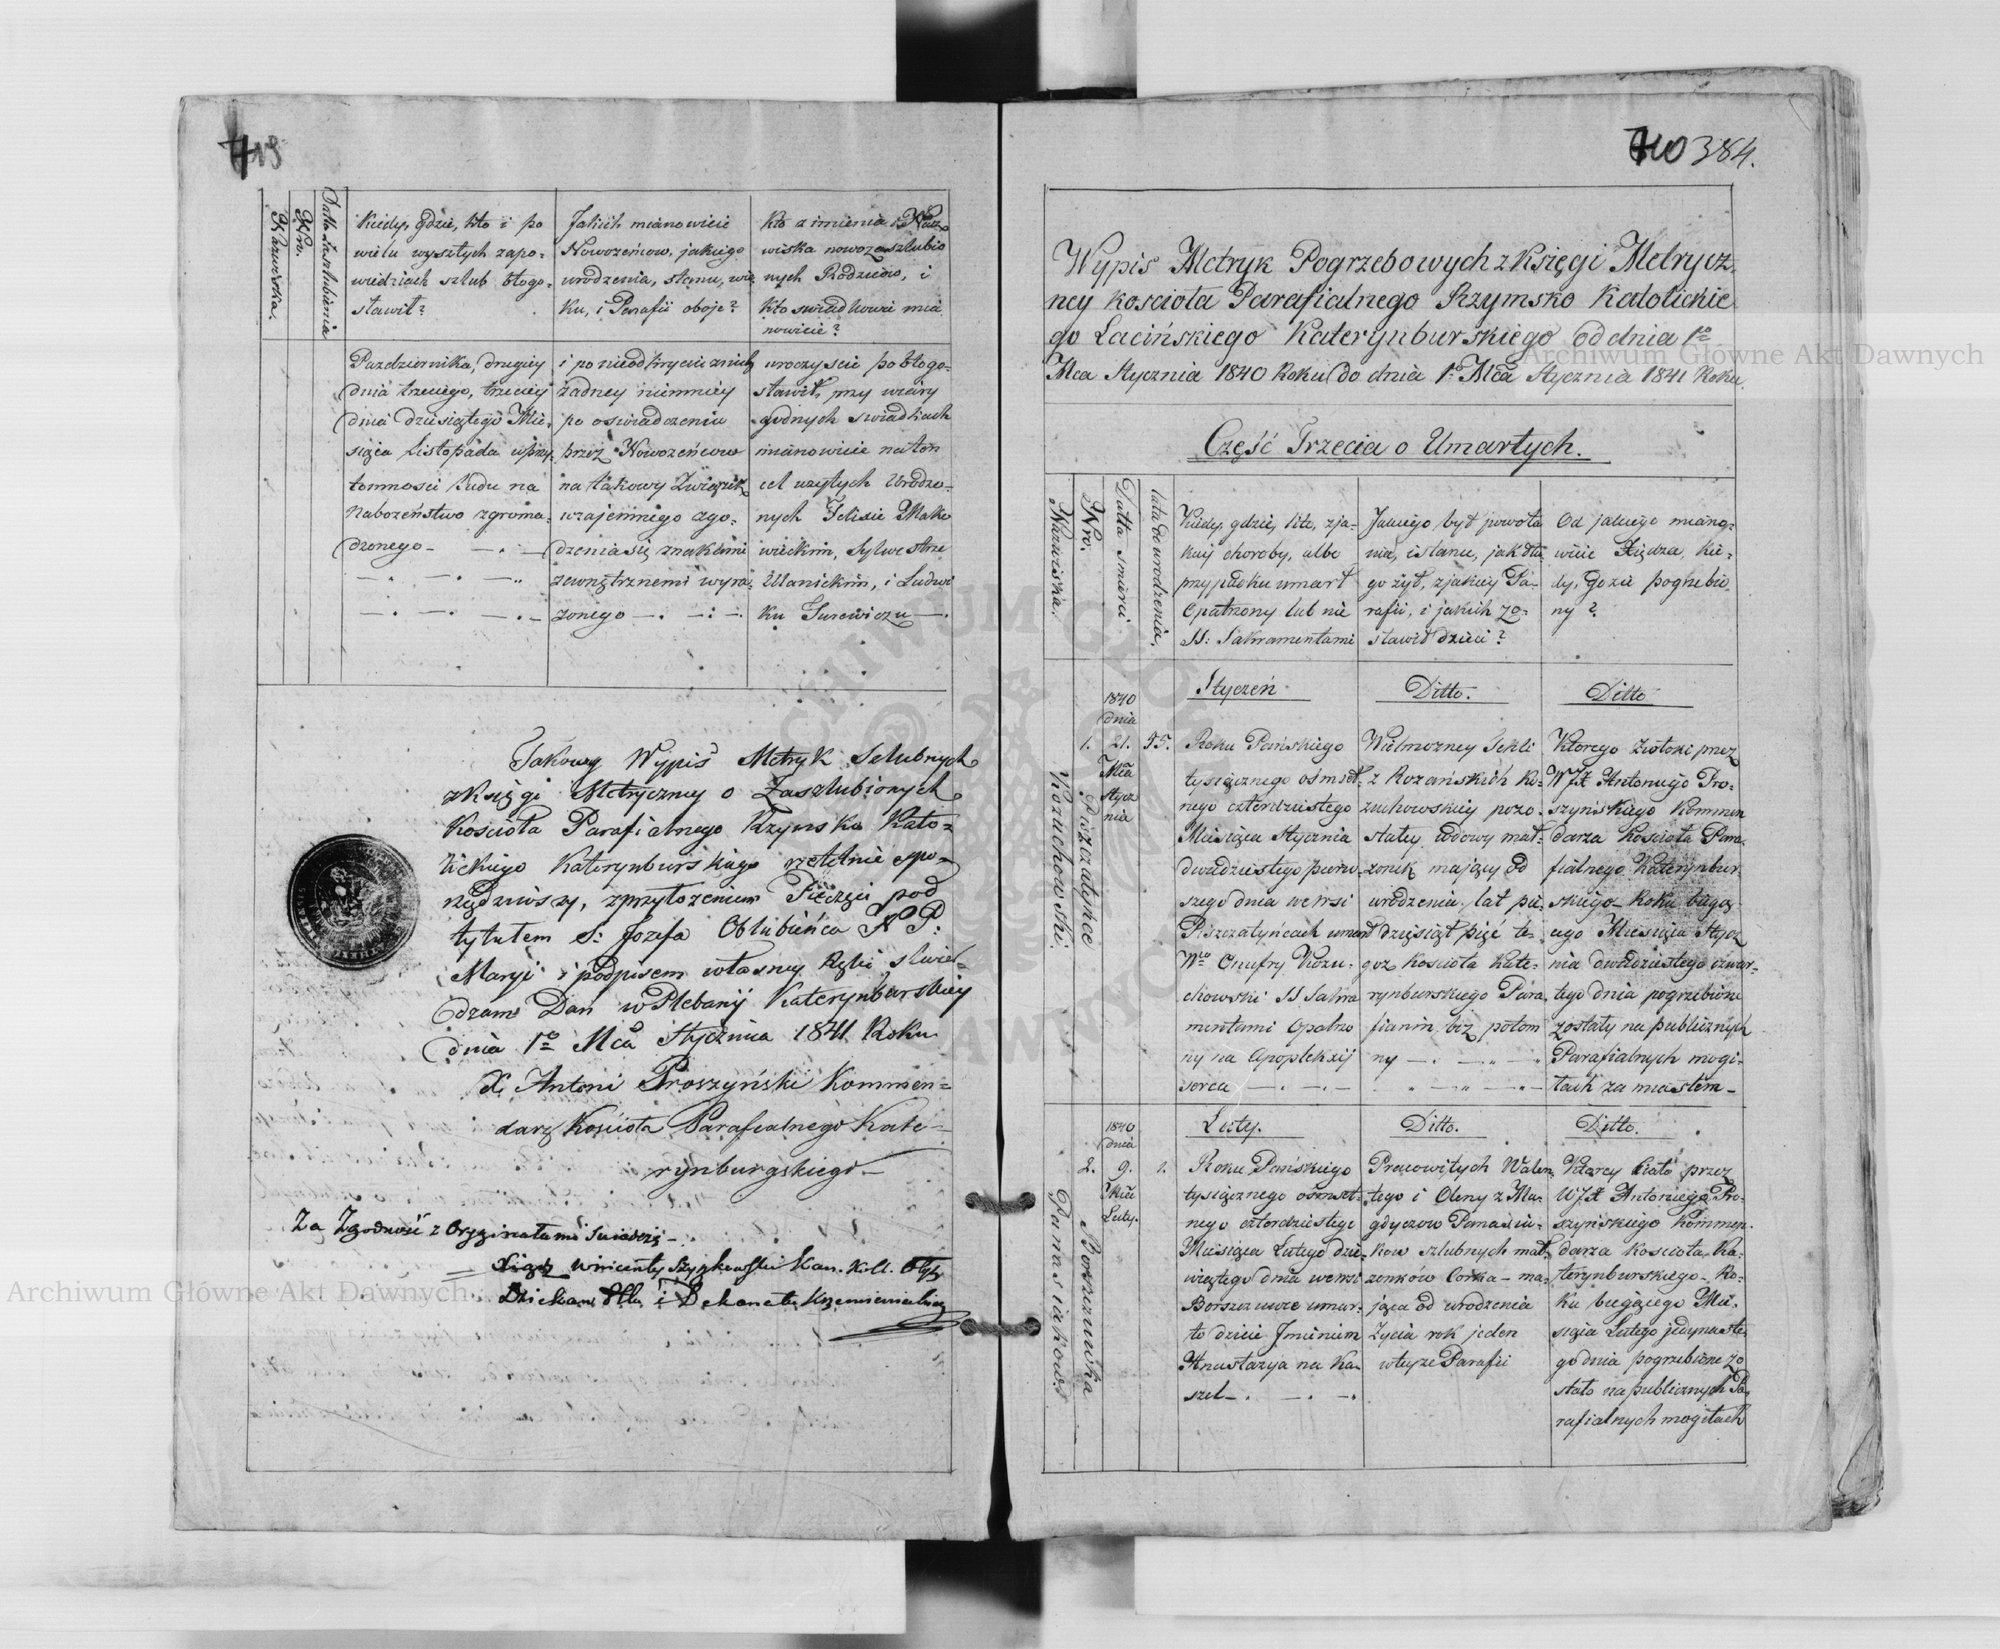 719
Nazwiska.
Nro.
Datta Zaszlubienia
Kiedy, gdzie, kto i po
wielu wyszłych zapo-
wiedziach szlub błogo-
sławił?
Jakich mianowicie
Nowożeńcow, jakiego
urodzenia, stanu, wie
ku, i Parafii oboje?
Kto z imienia i Naz
wiska nowozaszlubio
nych Rodziców, i
Kto swiadkowie mia
nowicie?
Pazdziernika, drugiey
dnia trzeciego, trzeciey
dnia dziesiątego Mie-
siąca Listopada w przy-
tomnosci ludu na
Nabożeństwo zgroma-
dzonego
i po nieodkryciu z nich
żadney niemniey
po oswiadczeniu
przez Nowożeńcow
na takowy Związek
wzajemnego zgo-
dzenia się znakami
zewnętrznemi wyra-
żonego
uroczyscie pobłogo-
sławił, przy wiary
godnych swiadkach
mianowicie na ten
cel użytych Urodzo-
nych Felisie Mako
wieckim, Sylwestrze
Ulanickim, i Ludwi
ku Jurewiczu
Takowy Wypis Metryk Szlubnych
z księgi Metryczney o Zaszlubionych
Kosciola Parafialnego Rzymsko Kato-
lickiego Katerynburskiego rzetelnie spo-
rządziwszy, z przyłożeniem Pieczęci pod
tytułem S: Jozefa Oblubieńca N P:
Maryi i podpisem własney Ręki stwier-
dzam Dan w Plebanij Katerynburskiey
dnia 1o Mca Stycznia 1841 Roku
X. Antoni Proszyński Kommen-
darz Kościoła Parafialnego Kate-
rynburgskiego
Za Zgodność z Oryginałami Swiadczę
Xiądz Wincenty Szyszkowski Kan. Koll. Ołyk
Dziekan i Dekanatu Krzemienieckiego
710 384.
Wypis Metryk Pogrzebowych z Księgi Metrycz-
ney kosciola Parafialnego Rzymsko Katolickie
go Łacińskiego Katerynburskiego od dnia 1o
Mca Stycznia 1840 Roku do dnia 1o Mca Stycznia 1841 Roku.
Część Trzecia o Umarłych.
Nazwiska.
Nro.
Datta smierci.
lata od urodzenia.
Kiedy, gdzie, kto, z ja-
kiey choroby, albo
przypadku umarł
Opatrzony lub nie
SS: Sakramentami
Jakiego był powoła
nia, i stanu, jak dłu
go żył, z jakiey Pa-
rafii, i jakich zo-
stawił dzieci?
Od jakiego miano-
wicie Xiędza, kie-
dy, gdzie pogrzebio
ny?
Kozuchowski
Piszczatyńce
1.
1840
dnia
21.
Mca
Stycz
nia
55.
Styczeń
Roku Pańskiego
tysiącznego osmset-
nego czterdziestego
Miesiąca Stycznia
dwudziestego pierw-
szego dnia we wsi
Piszczatyńcach umarł
Wny Onufry Kozu-
chowski SS Sakra
mentami Opatrzo
ny na Apoplekzij
serca
Ditto.
Wielmozney Tekli
z Rozańskich Ko-
zuchowskiey pozo-
stałey wdowy mał-
żonek maiący od
urodzenia lat pię-
dziesiąt pięć te-
goż kosciola Kate-
rynburskiego Para-
fianin bez potom
ny
Ditto
Ktorego zwłoki przez
WJX Antoniego Pro-
szyńskiego Kommen
darza Kosciola Para-
fialnego Katerynbur-
skiego Roku bieżą-
cego Miesiąca Stycz
nia dwudziestego czwar-
tego dnia pogrzebione
zostały na publicznych
Parafialnych mogi-
łach za miastem
Panasiukow
Borszczuwka
2.
1840
dnia
9.
Mca
Luty.
1.
Luty.
Roku Pańskiego
tysiącznego osmset-
nego czterdziestego
Miesiąca Lutego dzie-
wiątego dnia we wsi
Borszczuwce umar-
ło dziecie Imieniem
Anastazya na Ka-
szel
Ditto.
Pracowitych Walen-
tego i Oleny z Ma-
gdyczow Panasiu-
kow szlubnych mał-
żonków Corka ma-
jąca od urodzenia
Zycia rok jeden
w teyże Parafii
Ditto.
Ktorey ciało przez
WJX Antoniego Pro-
szyńskiego Kommen-
darza Kosciola Ka-
terynburskiego Ro-
ku bieżącego Mie-
siąca Lutego jedynaste-
go dnia pogrzebione zo
stało na publicznych Pa-
rafialnych mogiłach
Archiwum Główne Akt Dawnych
Archiwum Główne Akt Dawnych